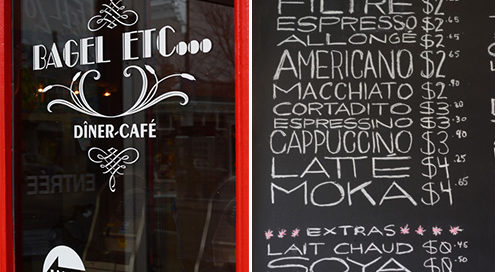 BAGEL ETC...
DÎNER-CAFÉ
ENTRÉE
FILTRE $2
ESPRESSO $2
ALLONGÉ $2
AMERICANO $2.40
MACCHIATO $2
CORTADITO $3.30
ESPRESSINO $3
CAPPUCCINO $3.90
LATTÉ $4.25
MOKA $4.65
EXTRAS
LAIT CHAUD $0.45
SOYA $0